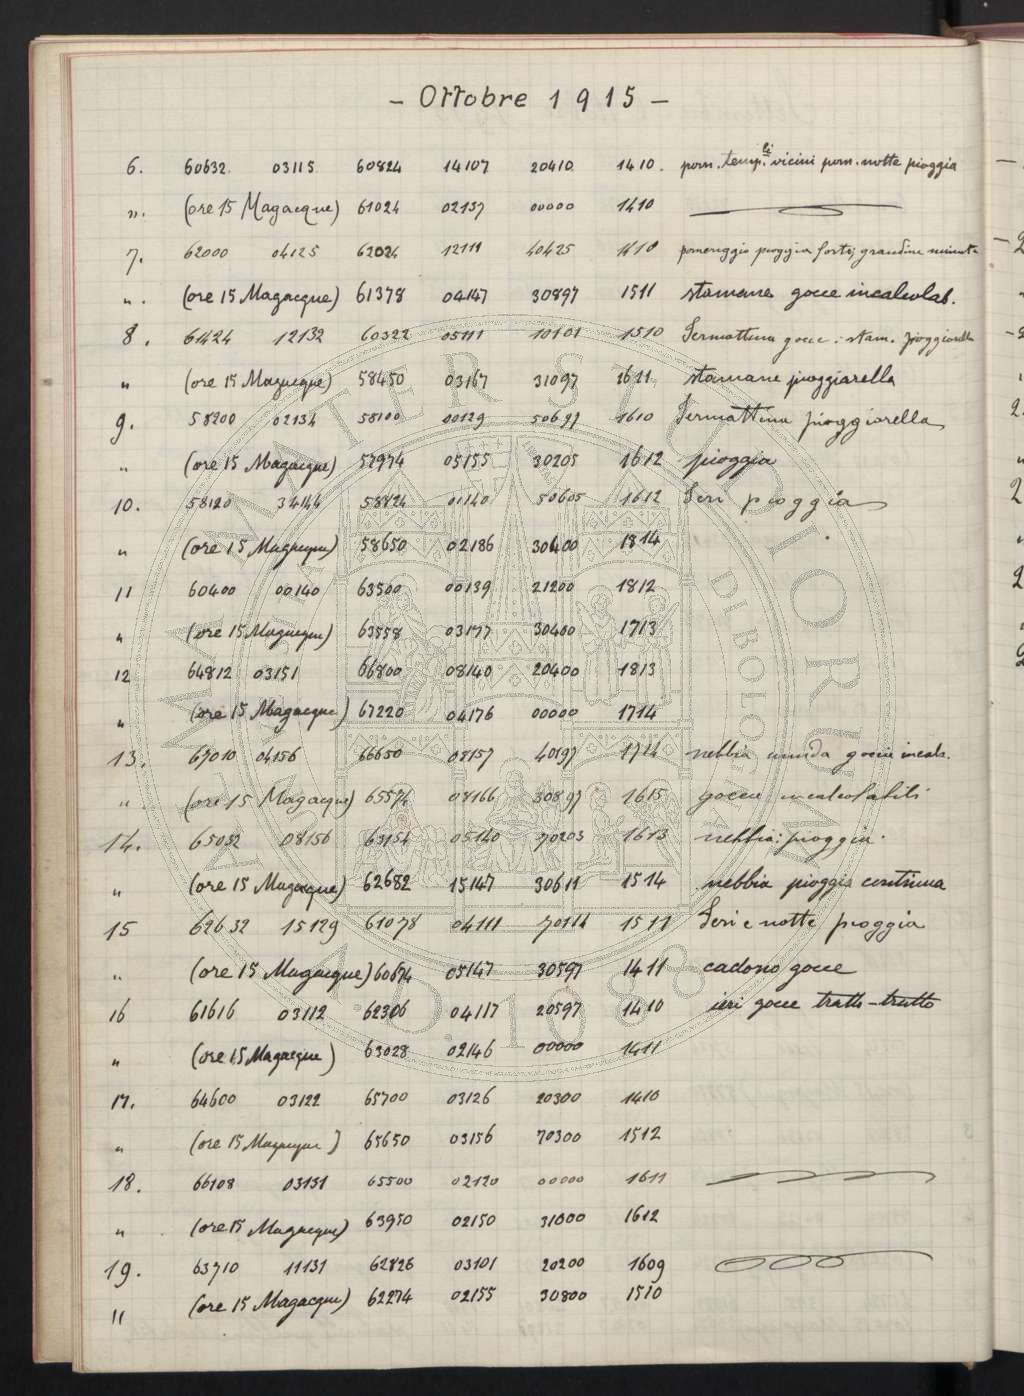 - Ottobre 1915 -
6. 60632. 03115 60824 14107 20410 1410. pom. temp.li vicini pom. notte pioggia
". (ore 15 Magacque) 61024 02137 00000 1410
7. 62000 04125 62024 12111 40425 1410 pomeriggio pioggia forte; grandine minuta
". (ore 15 Magacque) 61378 04147 30897 1511 stamane gocce incalcolab.
8. 61424 12132 60322 05111 10101 1510 Iermattina gocce: stam. pioggiarella
" (ore 15 Magacque) 58450 03167 31097 1611 stamane pioggiarella
9. 58200 02134 58100 00129 50697 1610 Iermattina pioggiarella
" (ore 15 Magacque) 57974 05155 30205 1612 pioggia
10. 58120 34144 58824 01140 50605 1612 Ieri pioggia
" (ore 15 Magacque) 58650 02186 30400 1814
11 60400 00140 63500 00139 21200 1812
" (ore 15 Magacque) 63558 03177 30400 1713
12 64812 03151 66800 08140 20400 1813
" (ore 15 Magacque) 67220 04176 00000 1714
13. 67010 04156 66650 08157 40197 1714 nebbia umida gocce incalc.
". (ore 15 Magacque) 65574 08166 30897 1615 gocce incalcolabili
14. 65032 08156 63154 05140 70203 1613 nebbia: pioggia.
" (ore 15 Magacque) 62682 15147 30611 1514 nebbia pioggia continua
15 62632 15129 61078 04111 70114 1511 Ieri e notte pioggia
" (ore 15 Magacque) 60674 05147 30597 1411 cadono gocce
16 61616 03112 62306 04117 20597 1410 ieri gocce tratto-tratto
" (ore 15 Magacque) 63028 02146 00000 1411
17. 64600 03122 65700 03126 20300 1410
" (ore 15 Magacque) 65650 03156 70300 1512
18. 66108 03131 65500 02120 00000 1611
" (ore 15 Magacque) 63950 02150 31000 1612
19. 63710 11131 62826 03101 20200 1609
" (ore 15 Magacque) 62274 02155 30800 1510
ALMA MATER STUDIORUM
A.D. 1088
DI BOLOGNA